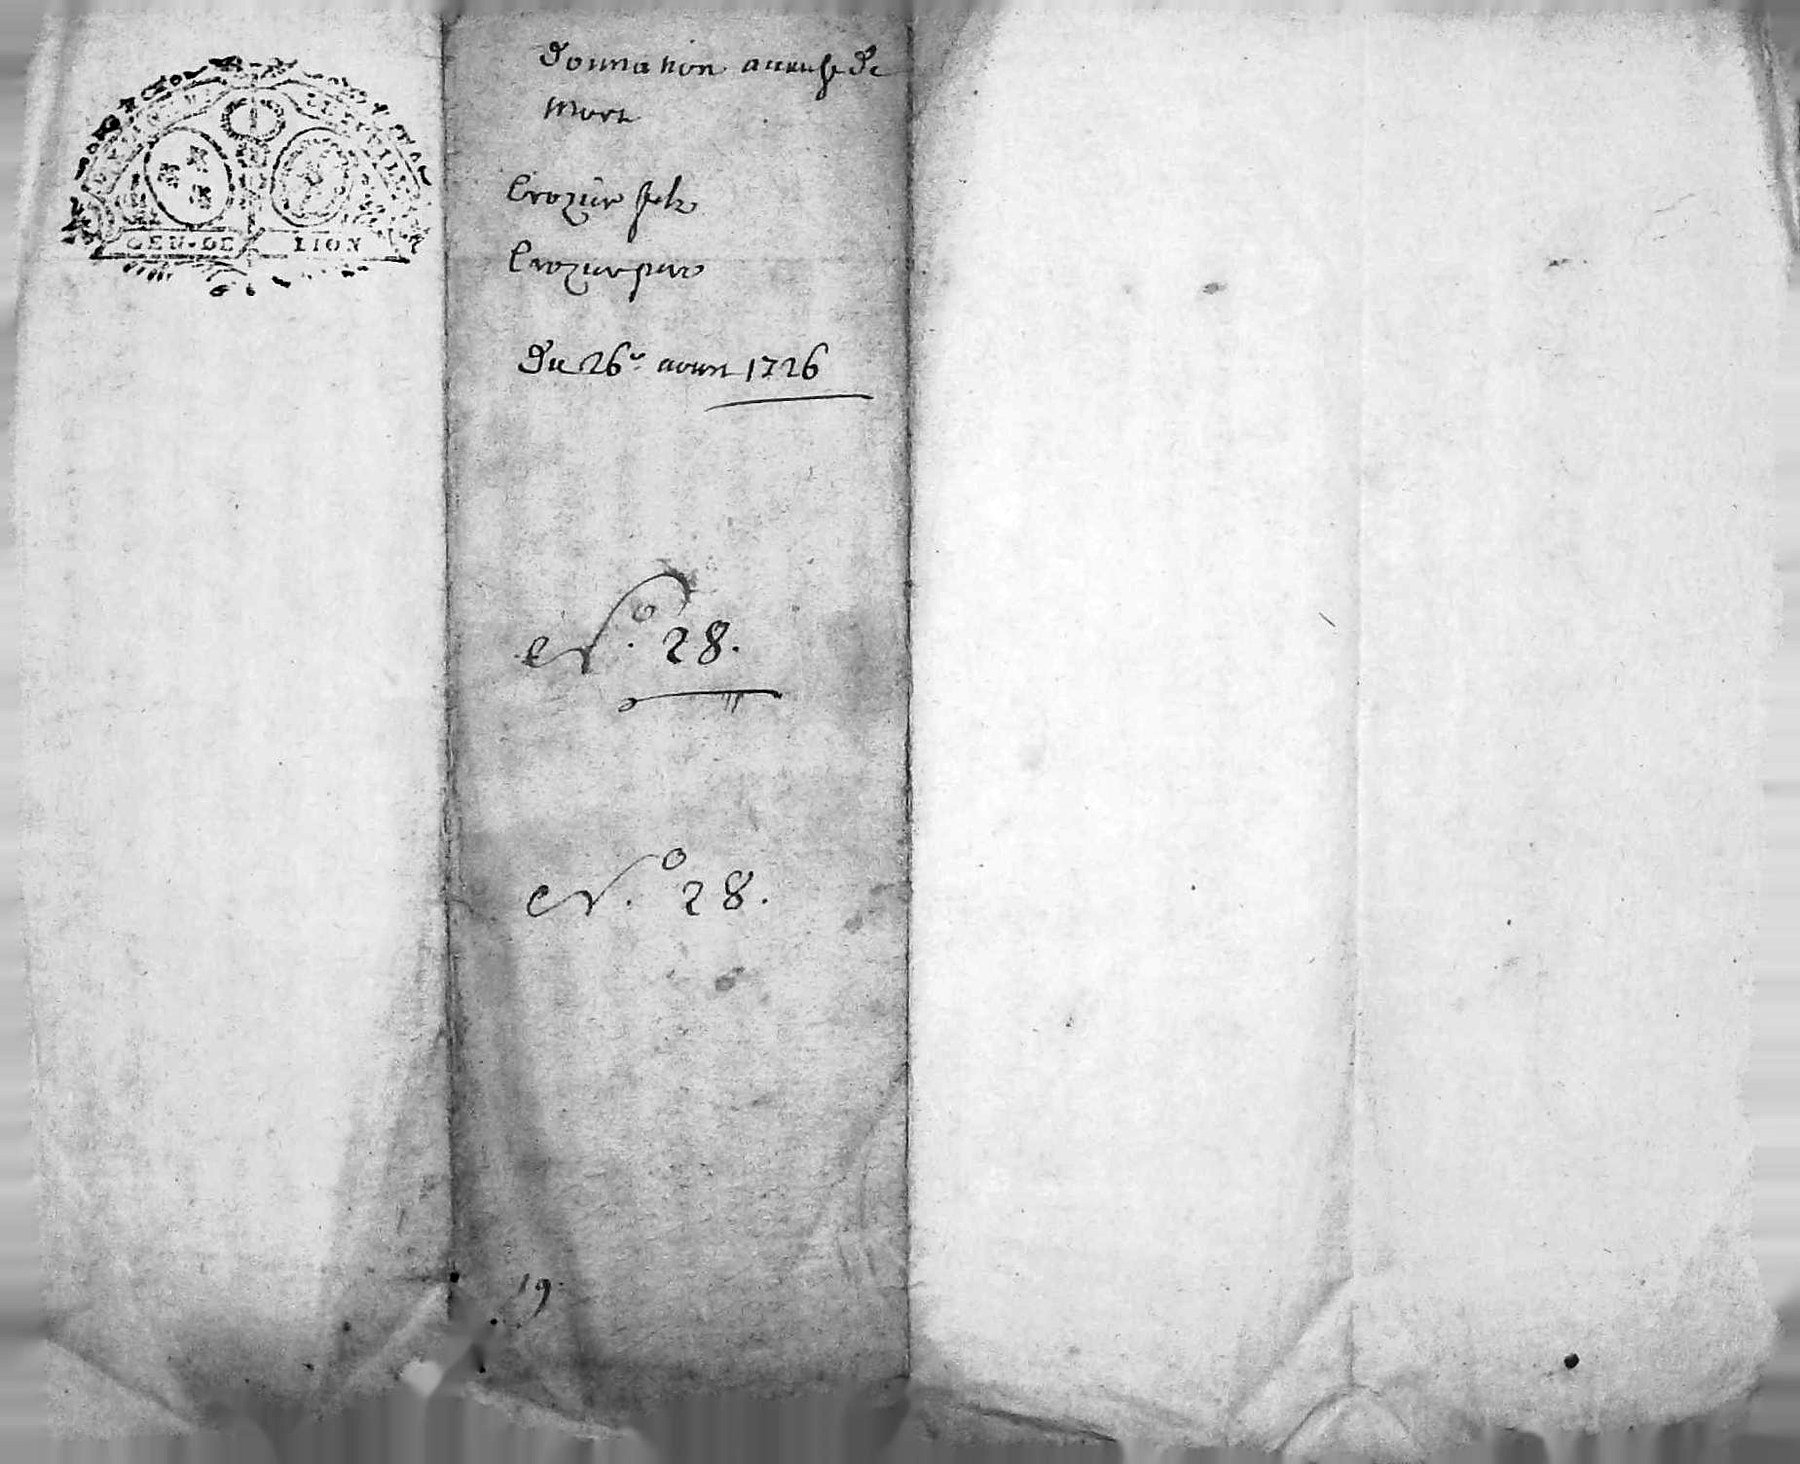 GEN·DE LION
Donnation acause de
mort
Crozier fils
Crozier pere
Du 26e aoust 1726
N.o 28.
N.o 28.
19